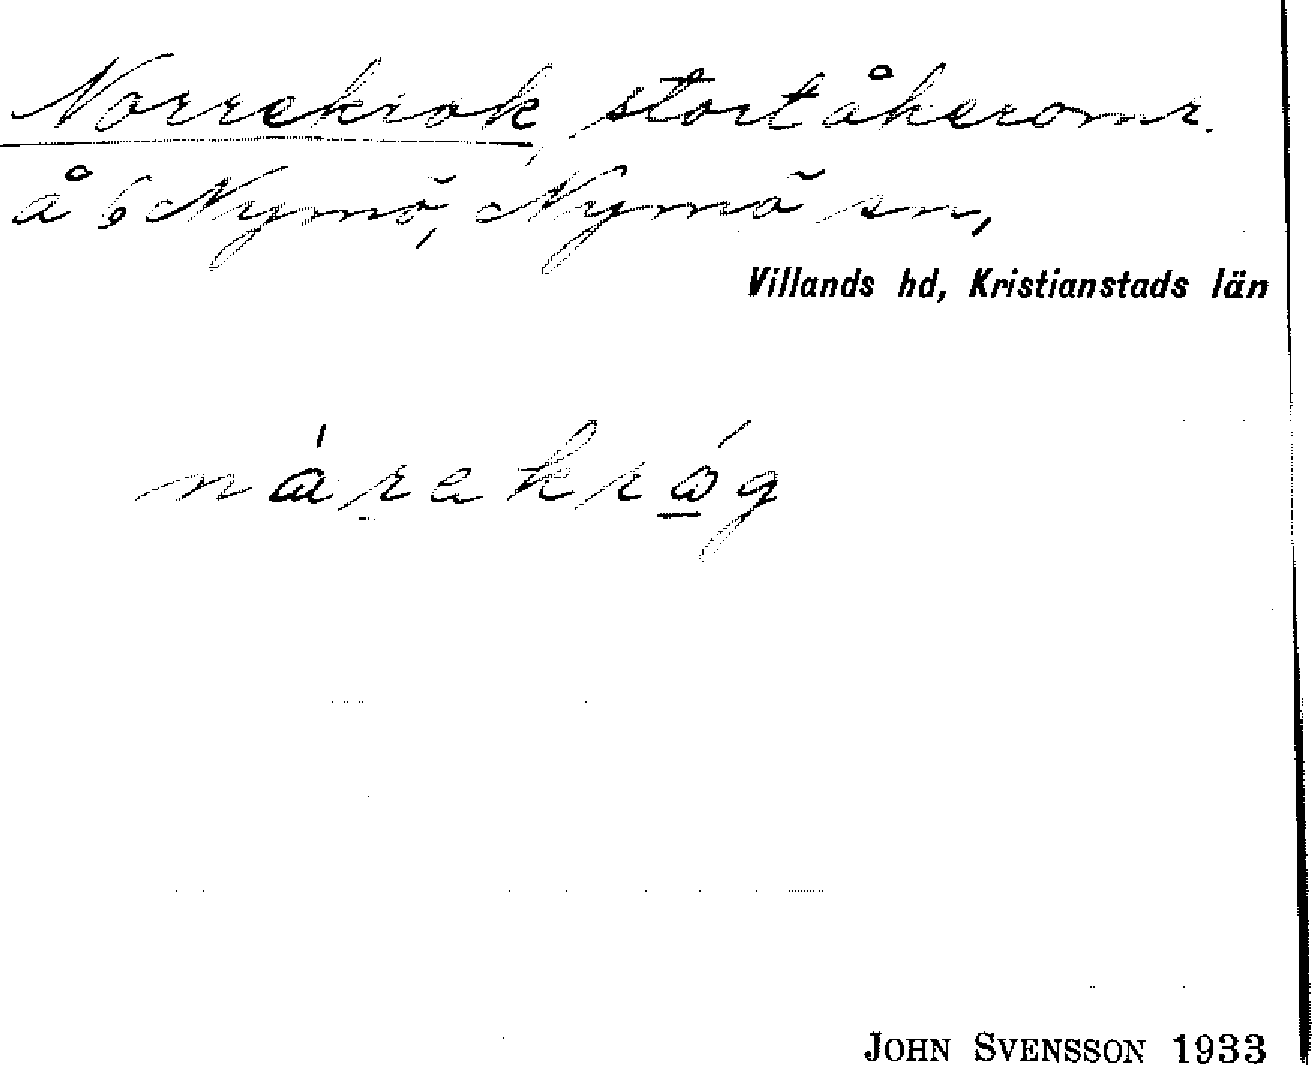 Norrekrok, stort åkeromr.
å 6 Nymö, Nymö sn,
Villands hd, Kristianstads län
nárakrǿg
JOHN SVENSSON 1933